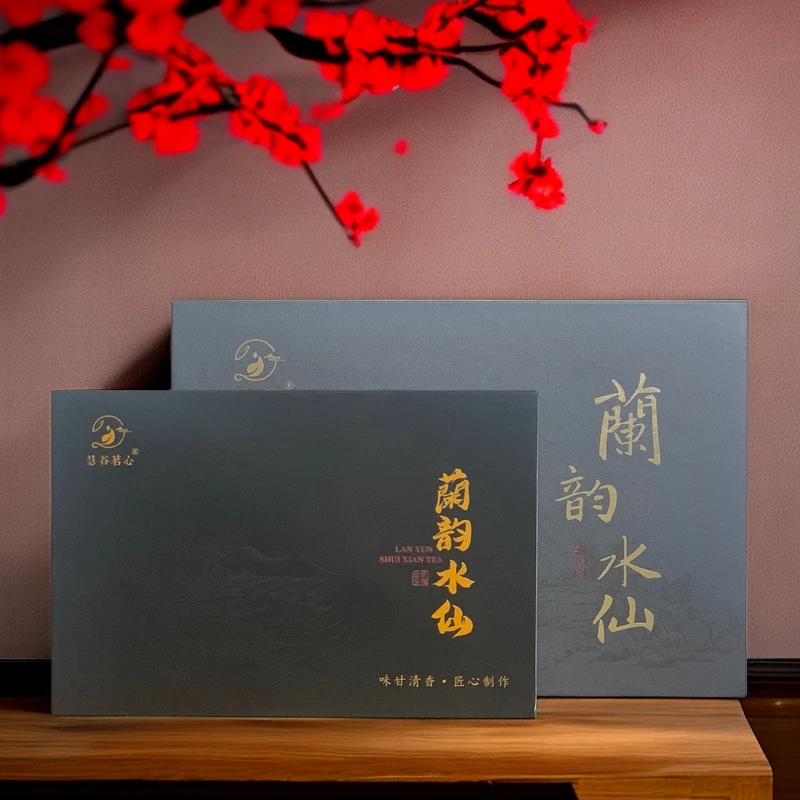 慧谷茗心
®
蘭韵水仙
LAN YUN
SHUI XIAN TEA
味甘清香·匠心制作
®
蘭韵水仙